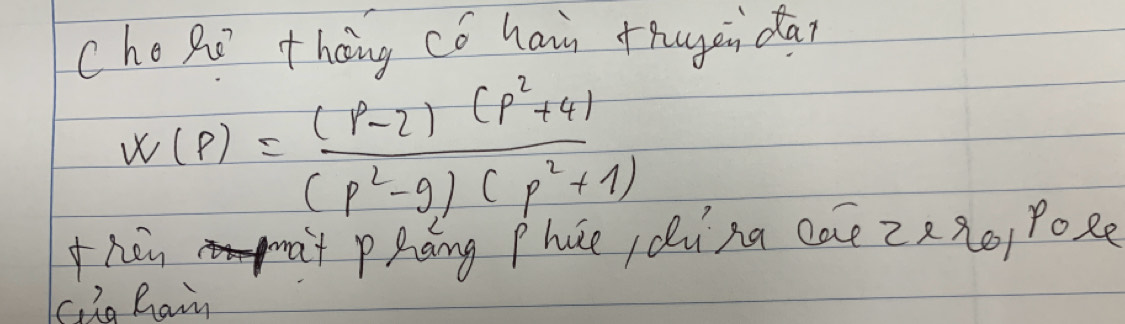 Cho hệ thống có hàm truyền đạt
W(P) = (P-2) (P²+4)
(P²-9) (P²+1)
trên mặt phẳng phức, chỉ ra các zero, Pole
của hàm